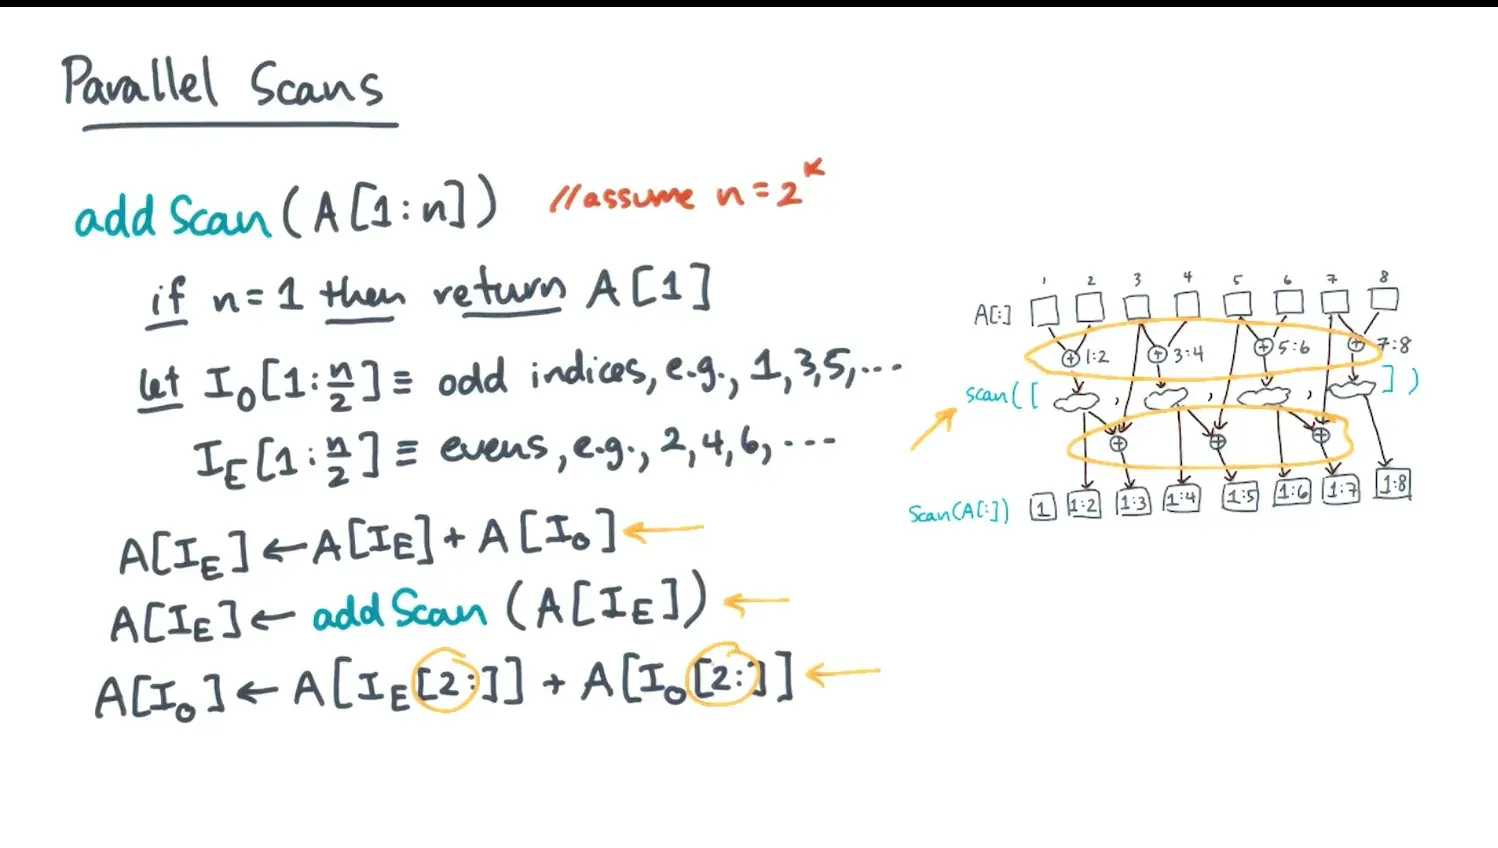 Parallel Scans
addScan(A[1:n]) //assume n=2^k
if n=1 then return A[1]
let I_O[1:n/2] ≡ odd indices, e.g., 1,3,5,...
I_E[1:n/2] ≡ evens, e.g., 2,4,6,...
A[I_E] ← A[I_E] + A[I_O]
A[I_E] ← addScan(A[I_E])
A[I_O] ← A[I_E[2:]] + A[I_O[2:]]
1 2 3 4 5 6 7 8
A[:]
⊕ 1:2 ⊕ 3:4 ⊕ 5:6 ⊕ 7:8
scan([ , , , ])
⊕ ⊕ ⊕
Scan(A[:]) 1 1:2 1:3 1:4 1:5 1:6 1:7 1:8